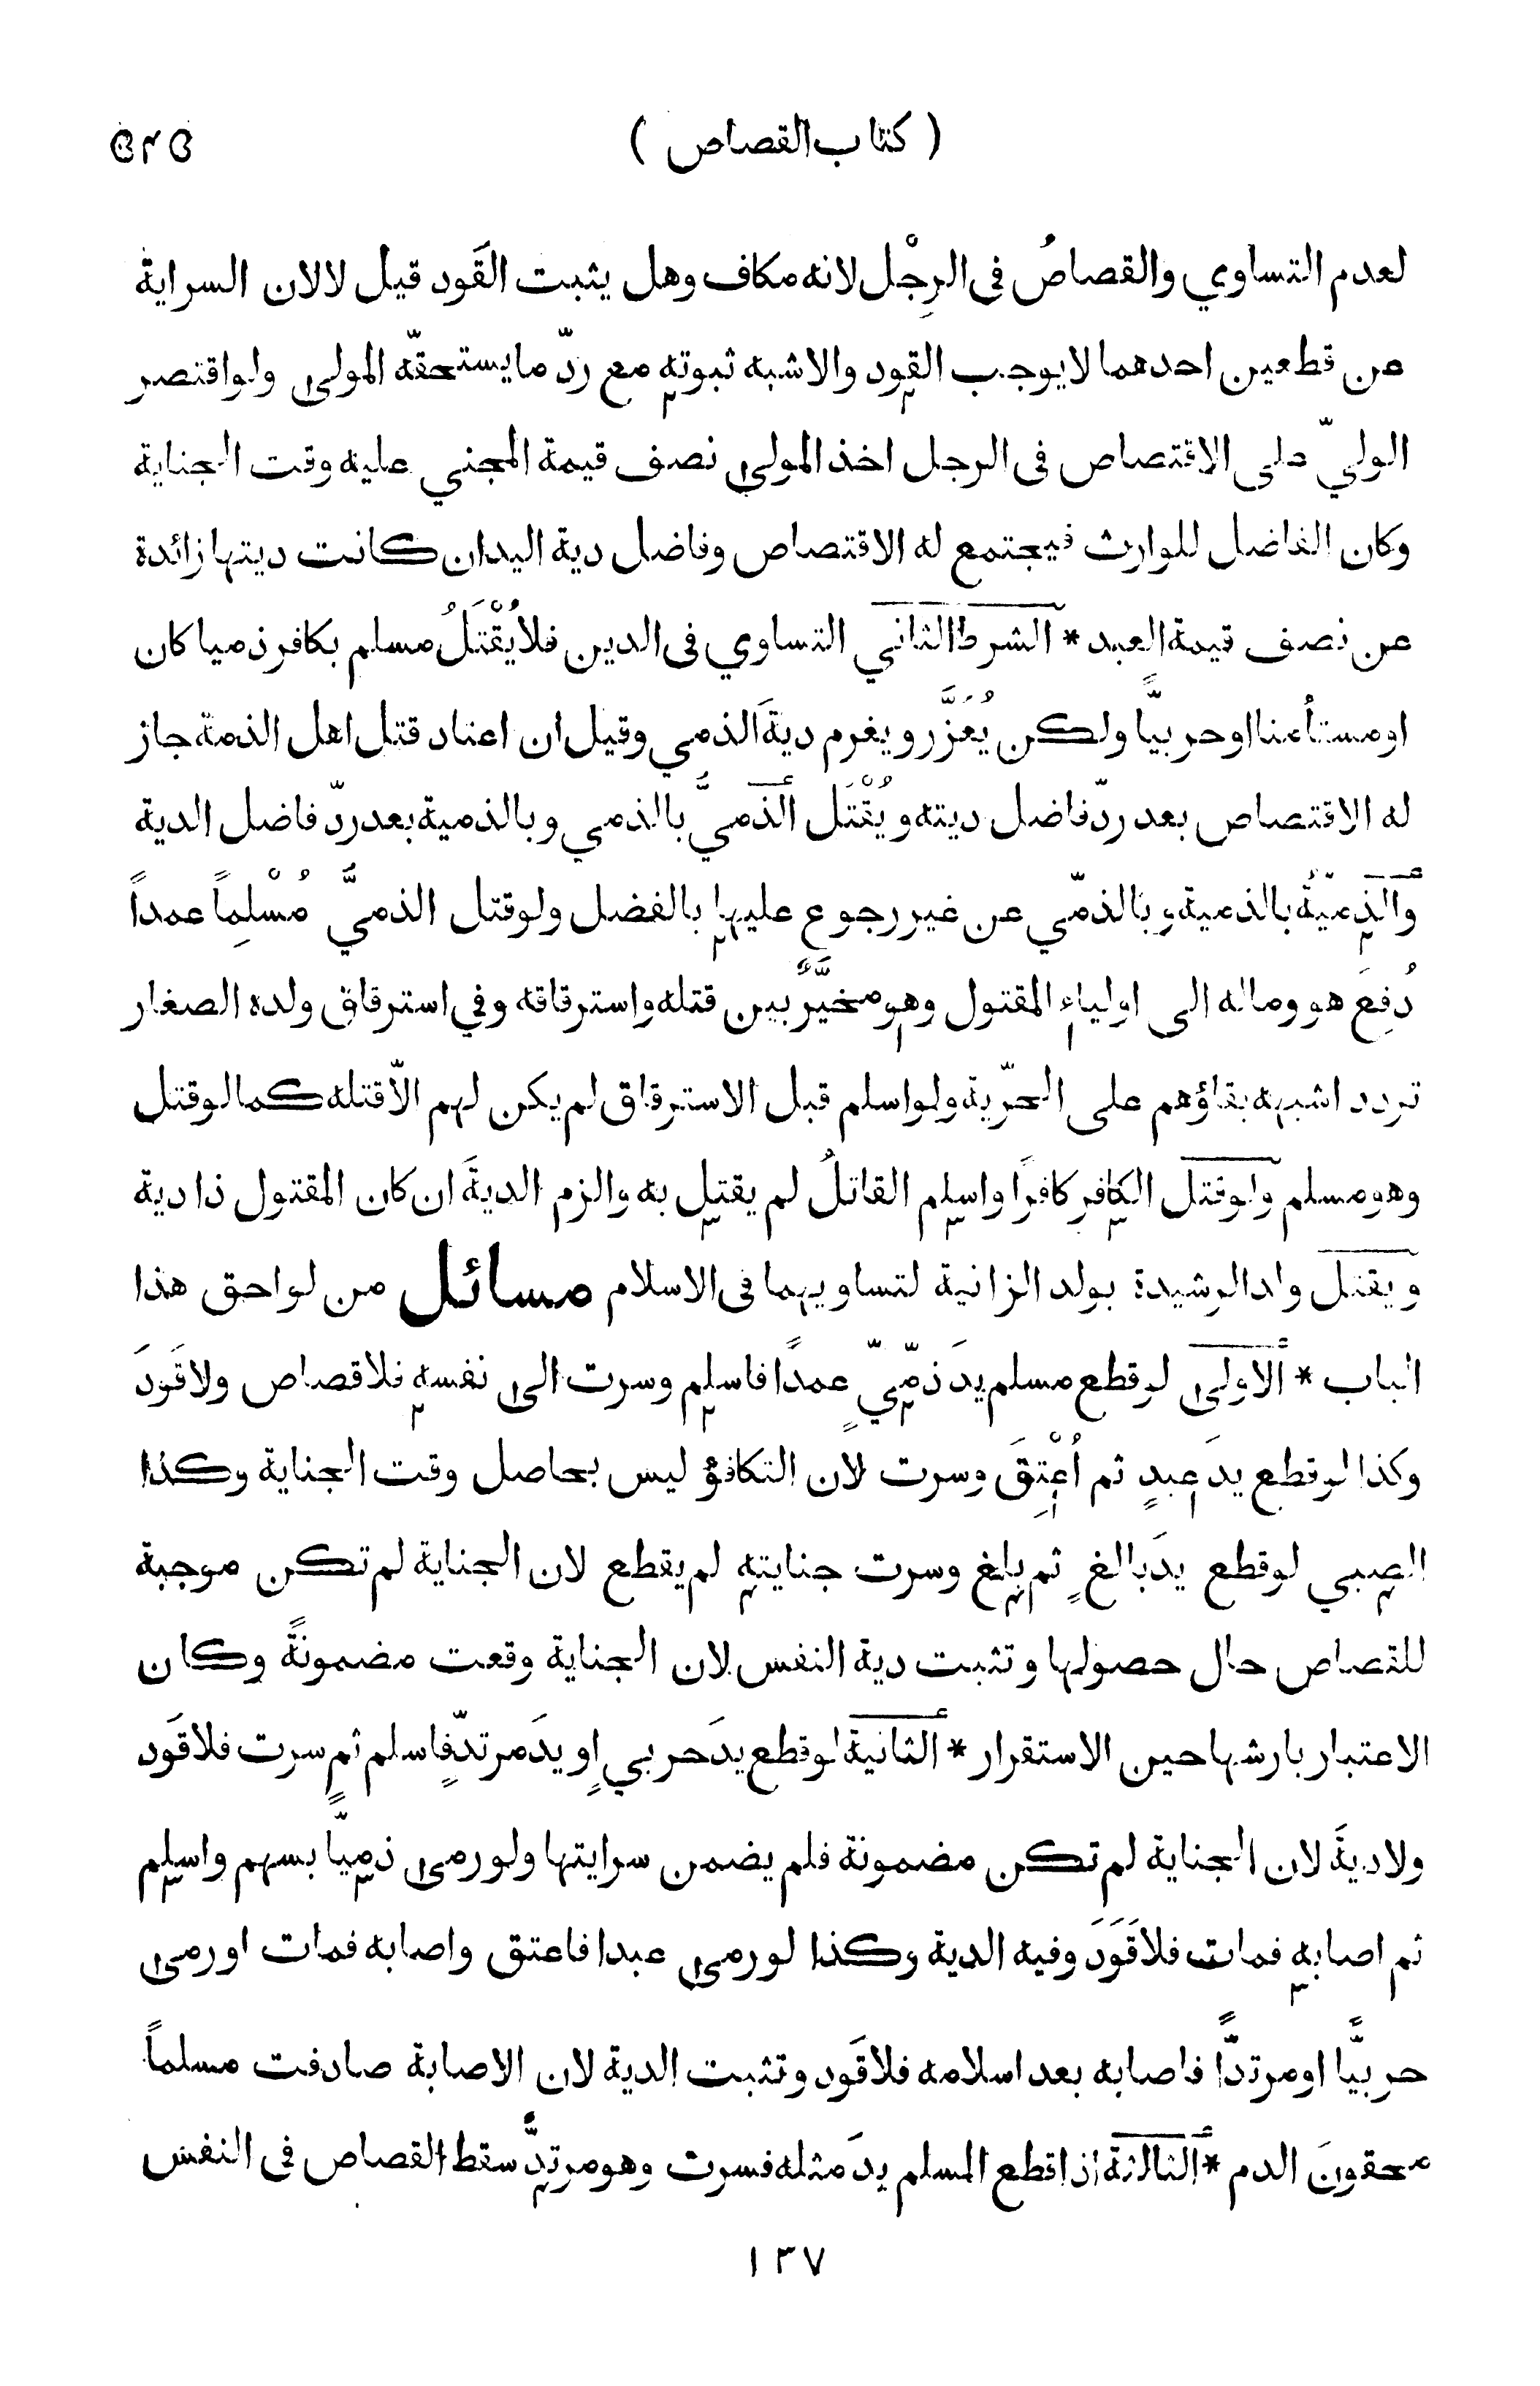 ( كتاب القصاص )
٥٢٥
لعدم التساوي والقصاصُ في الرِجْل لانه مكاف وهل يثبت القَود قيل لا لان السراية
عن قطعين احدهما لا يوجب القود والاشبه ثبوته مع ردّ ما يستحقّه المولى ولو اقتصر
الوليّ على الاقتصاص في الرجل اخذ المولى نصف قيمة المجني عليه وقت الجناية
وكان الفاضل للوارث فيجتمع له الاقتصاص وفاضل دية اليد ان كانت ديتها زائدة
عن نصف قيمة العبد * الشرط الثاني التساوي في الدين فلا يُقْتَلُ مسلم بكافر ذميا كان
او مستأمنا او حربيًّا ولكن يُعَزَّر ويغرم ديةَ الذمي وقيل ان اعتاد قتل اهل الذمة جاز
له الاقتصاص بعد ردّ فاضل ديته ويُقْتَل الذميُّ بالذمي وبالذمية بعد ردّ فاضل الدية
والذميّةُ بالذمية وبالذمّي من غير رجوع عليها بالفضل ولو قتل الذميُّ مُسْلِماً عمداً
دُفِعَ هو وماله الى اولياء المقتول وهم مخيَّرٌ بين قتله واسترقاقه وفي استرقاق ولده الصغار
تردد اشبهه بقاؤهم على الحرّية ولو اسلم قبل الاسترقاق لم يكن لهم الّا قتله كما لو قتل
وهو مسلم ولو قتل الكافر كافرًا واسلم القاتلُ لم يقتل به والزم الديةَ ان كان المقتول ذا دية
ويقتل ولد الرشيدة بولد الزانية لتساويهما في الاسلام مسائل من لواحق هذا
الباب * الاولى لو قطع مسلم يدَ ذمّيّ عمدًا فاسلم وسرت الى نفسه فلا قصاص ولا قَودَ
وكذا لو قطع يدَ عبدٍ ثم اُعْتِقَ وسرت لان التكافؤ ليس بحاصل وقت الجناية وكذا
الصبي لو قطع يدَ بالغٍ ثم بلغ وسرت جنايته لم يقطع لان الجناية لم تكن موجبة
للقصاص حال حصولها وتثبت دية النفس لان الجناية وقعت مضمونةً وكان
الاعتبار بارشها حين الاستقرار * الثانية لو قطع يدَ حربي او يدَ مرتدّ فاسلم ثم سرت فلا قَود
ولا ديةَ لان الجناية لم تكن مضمونة فلم يضمن سرايتها ولو رمى ذميّا بسهم واسلم
ثم اصابه فمات فلا قَوَدَ وفيه الدية وكذا لو رمى عبدا فاعتق واصابه فمات او رمى
حربيًّا او مرتدًّا فاصابه بعد اسلامه فلا قَود وتثبت الدية لان الاصابة صادفت مسلماً
محقونَ الدم * الثالثة اذا قطع المسلم يدَ مثله فسرت وهو مرتدٌّ سقط القصاص في النفس
١٣٧